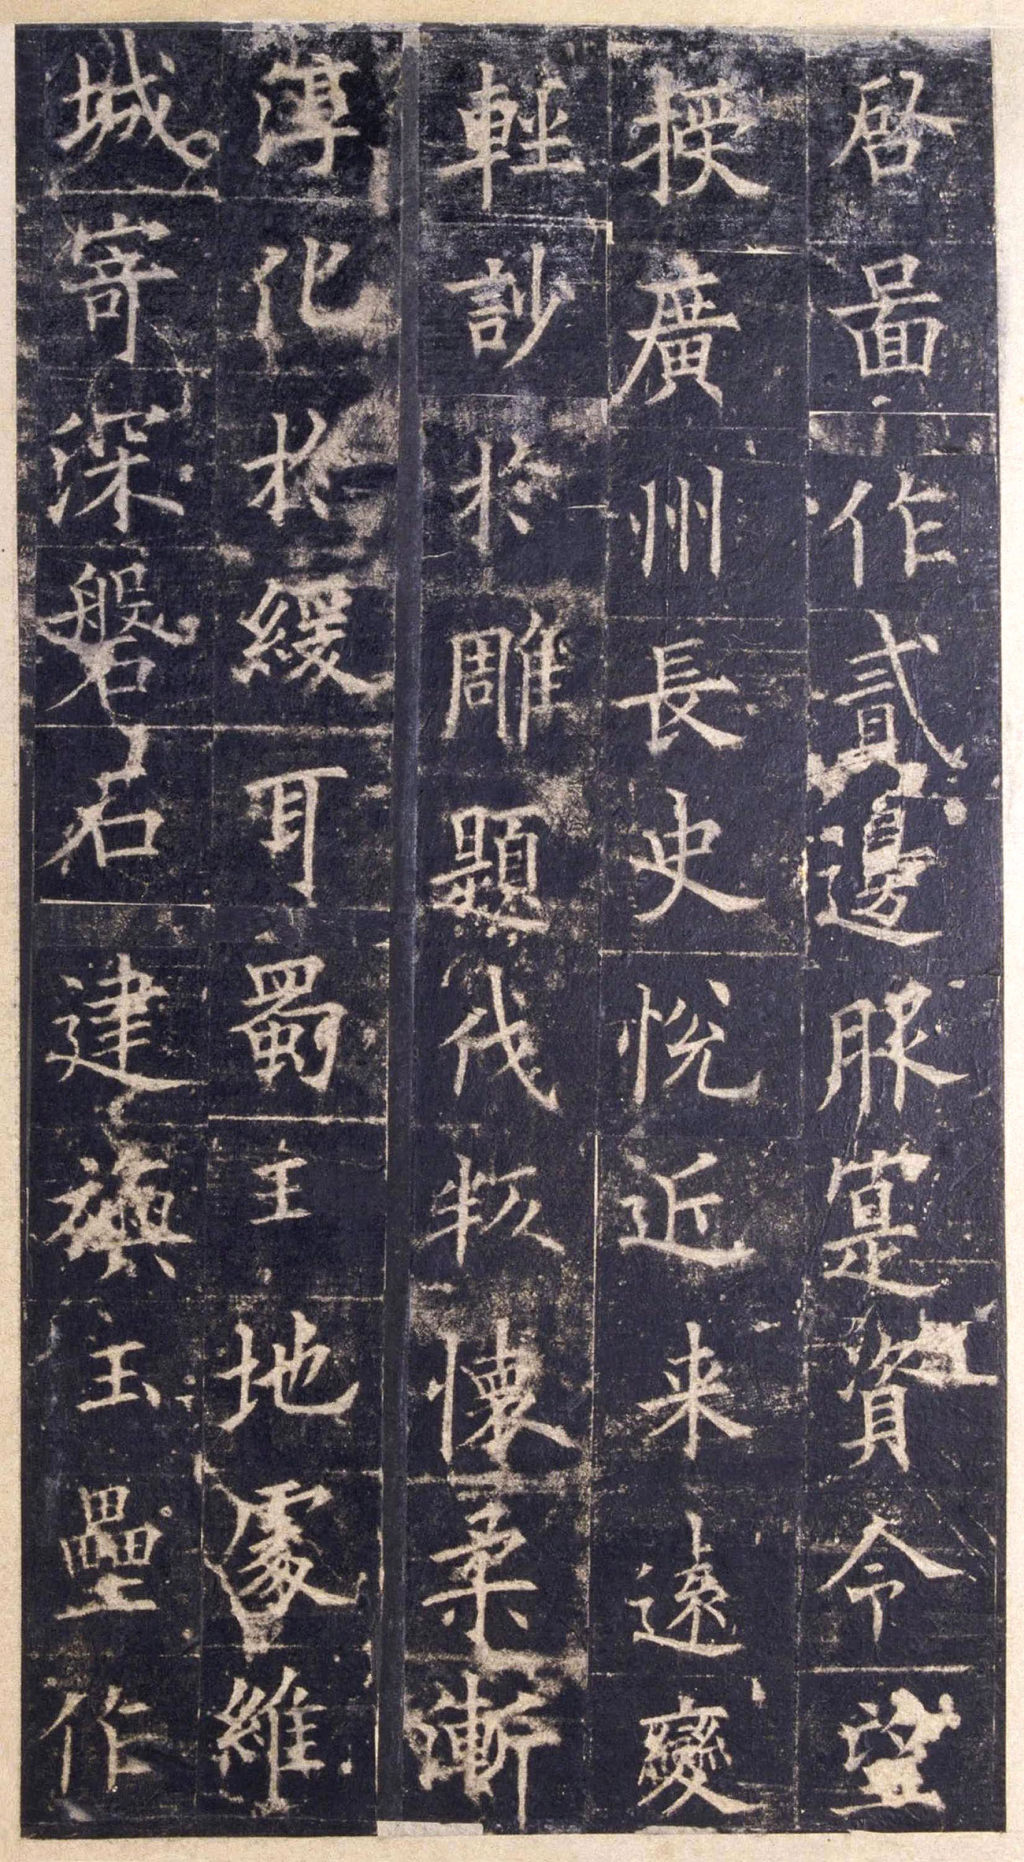 啓圖作貳邊服寔資令望
授廣州長史悅近来遠變
輕訬於雕題伐叛懷柔漸
淳化於緩耳蜀王地處維
城寄深磐石建旟玉壘作